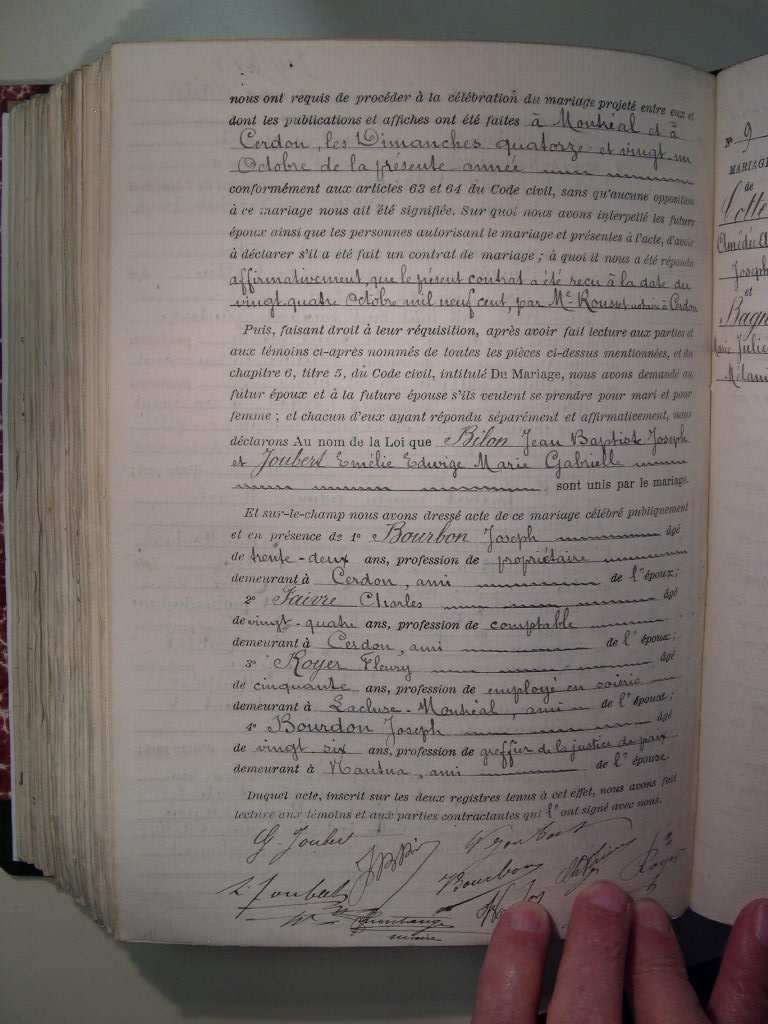 nous ont requis de procéder à la célébration du mariage projeté entre eux et
dont les publications et affiches ont été faites à Montréal et à
Cerdon, les Dimanches quatorze et vingt-un
Octobre de la présente année
conformément aux articles 63 et 64 du Code civil, sans qu'aucune opposition
à ce mariage nous ait été signifiée. Sur quoi nous avons interpellé les futurs
époux ainsi que les personnes autorisant le mariage et présentes à l'acte, d'avoir
à déclarer s'il a été fait un contrat de mariage ; à quoi il nous a été répondu
affirmativement, que le présent contrat a été reçu à la date du
vingt quatre Octobre mil neuf cent, par Me Rousset notaire à Cerdon
Puis, faisant droit à leur réquisition, après avoir fait lecture aux parties et
aux témoins ci-après nommés de toutes les pièces ci-dessus mentionnées, et du
chapitre 6, titre 5, du Code civil, intitulé Du Mariage, nous avons demandé au
futur époux et à la future épouse s'ils veulent se prendre pour mari et pour
femme ; et chacun d'eux ayant répondu séparément et affirmativement, nous
déclarons Au nom de la Loi que Bilon Jean Baptiste Joseph
et Joubert Emélie Edwige Marie Gabrielle
sont unis par le mariage.
Et sur-le-champ nous avons dressé acte de ce mariage célébré publiquement
et en présence de 1° Bourbon Joseph âgé
de trente-deux ans, profession de propriétaire
demeurant à Cerdon, ami de l'époux ;
2° Faivre Charles âgé
de vingt-quatre ans, profession de comptable
demeurant à Cerdon, ami de l'époux ;
3° Royer Fleury âgé
de cinquante ans, profession de employé en soierie
demeurant à Lacluse-Montréal, ami de l'épouse ;
4° Bourdon Joseph âgé
de vingt six ans, profession de greffier de la justice de paix
demeurant à Nantua, ami de l'épouse.
Duquel acte, inscrit sur les deux registres tenus à cet effet, nous avons fait
lecture aux témoins et aux parties contractantes qui l'ont signé avec nous.
G. Joubert
Joubert
Bourbon
Royer
maire
N° 9
MARIAGE
de
Amédée
Joseph
et
Marie Julie
Mélanie